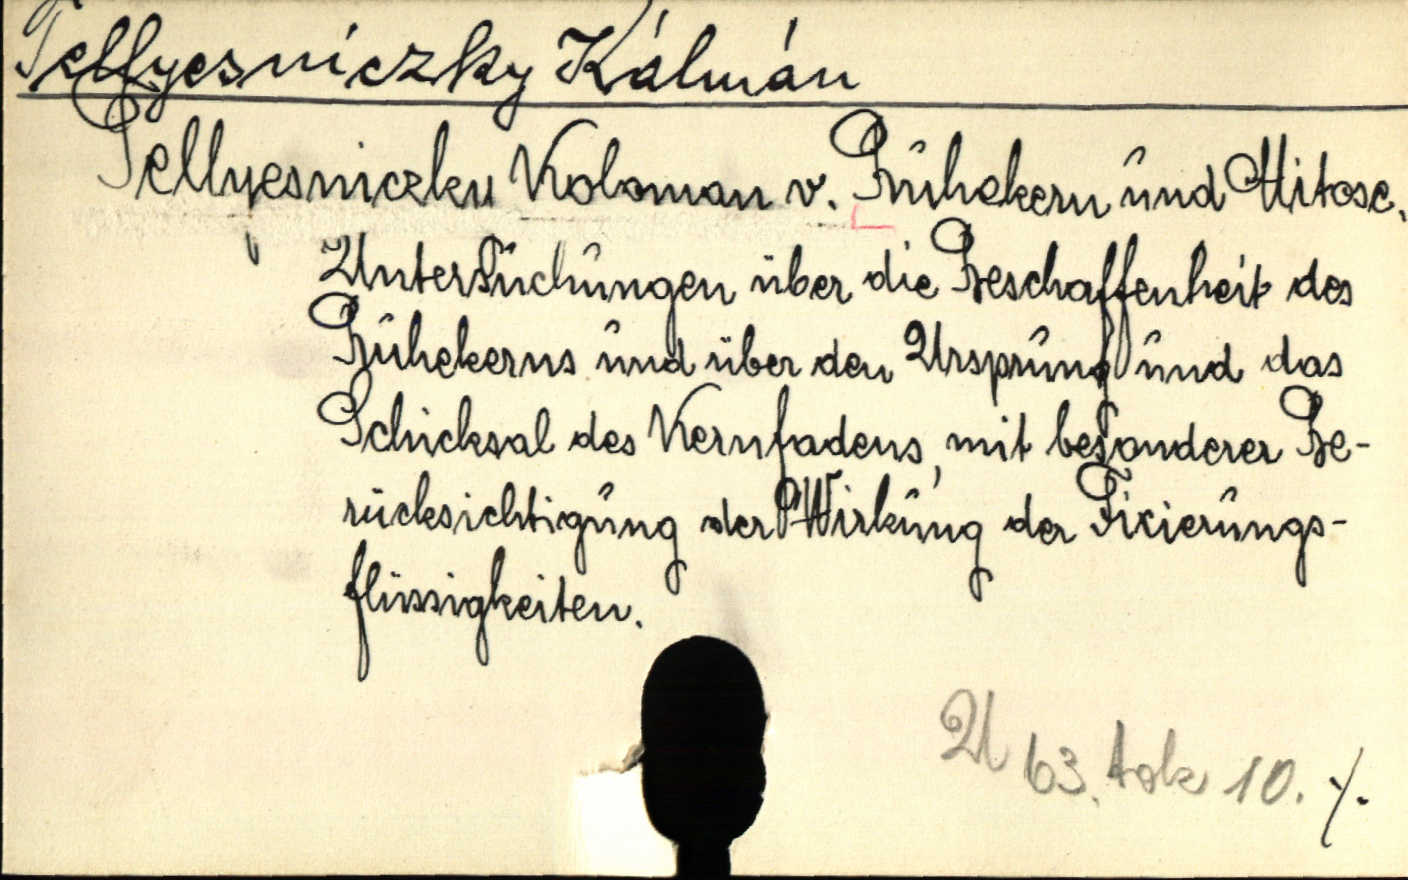 Tellyesniczky Kálmán
Tellyesniczky Koloman v. Ruhekern und Mitose.
Untersuchungen über die Beschaffenheit des
Ruhekerns und über den Ursprung und das
Schicksal des Kernfadens, mit besonderer Be-
rücksichtigung der Wirkung der Fixierungs-
flüssigkeiten.
U 63. tok 10. /.